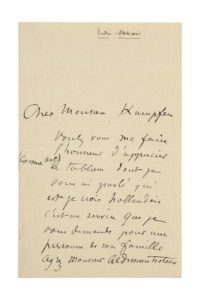 Cher Monsieur Kaempfen
Voulez vous me faire
l'honneur d'apprécier
(comme art)
le tableau dont je
vous ai parlé qui
est je crois hollandais
c'est un service que je
vous demande pour une
personne de ma famille
Monsieur l'Administrateur